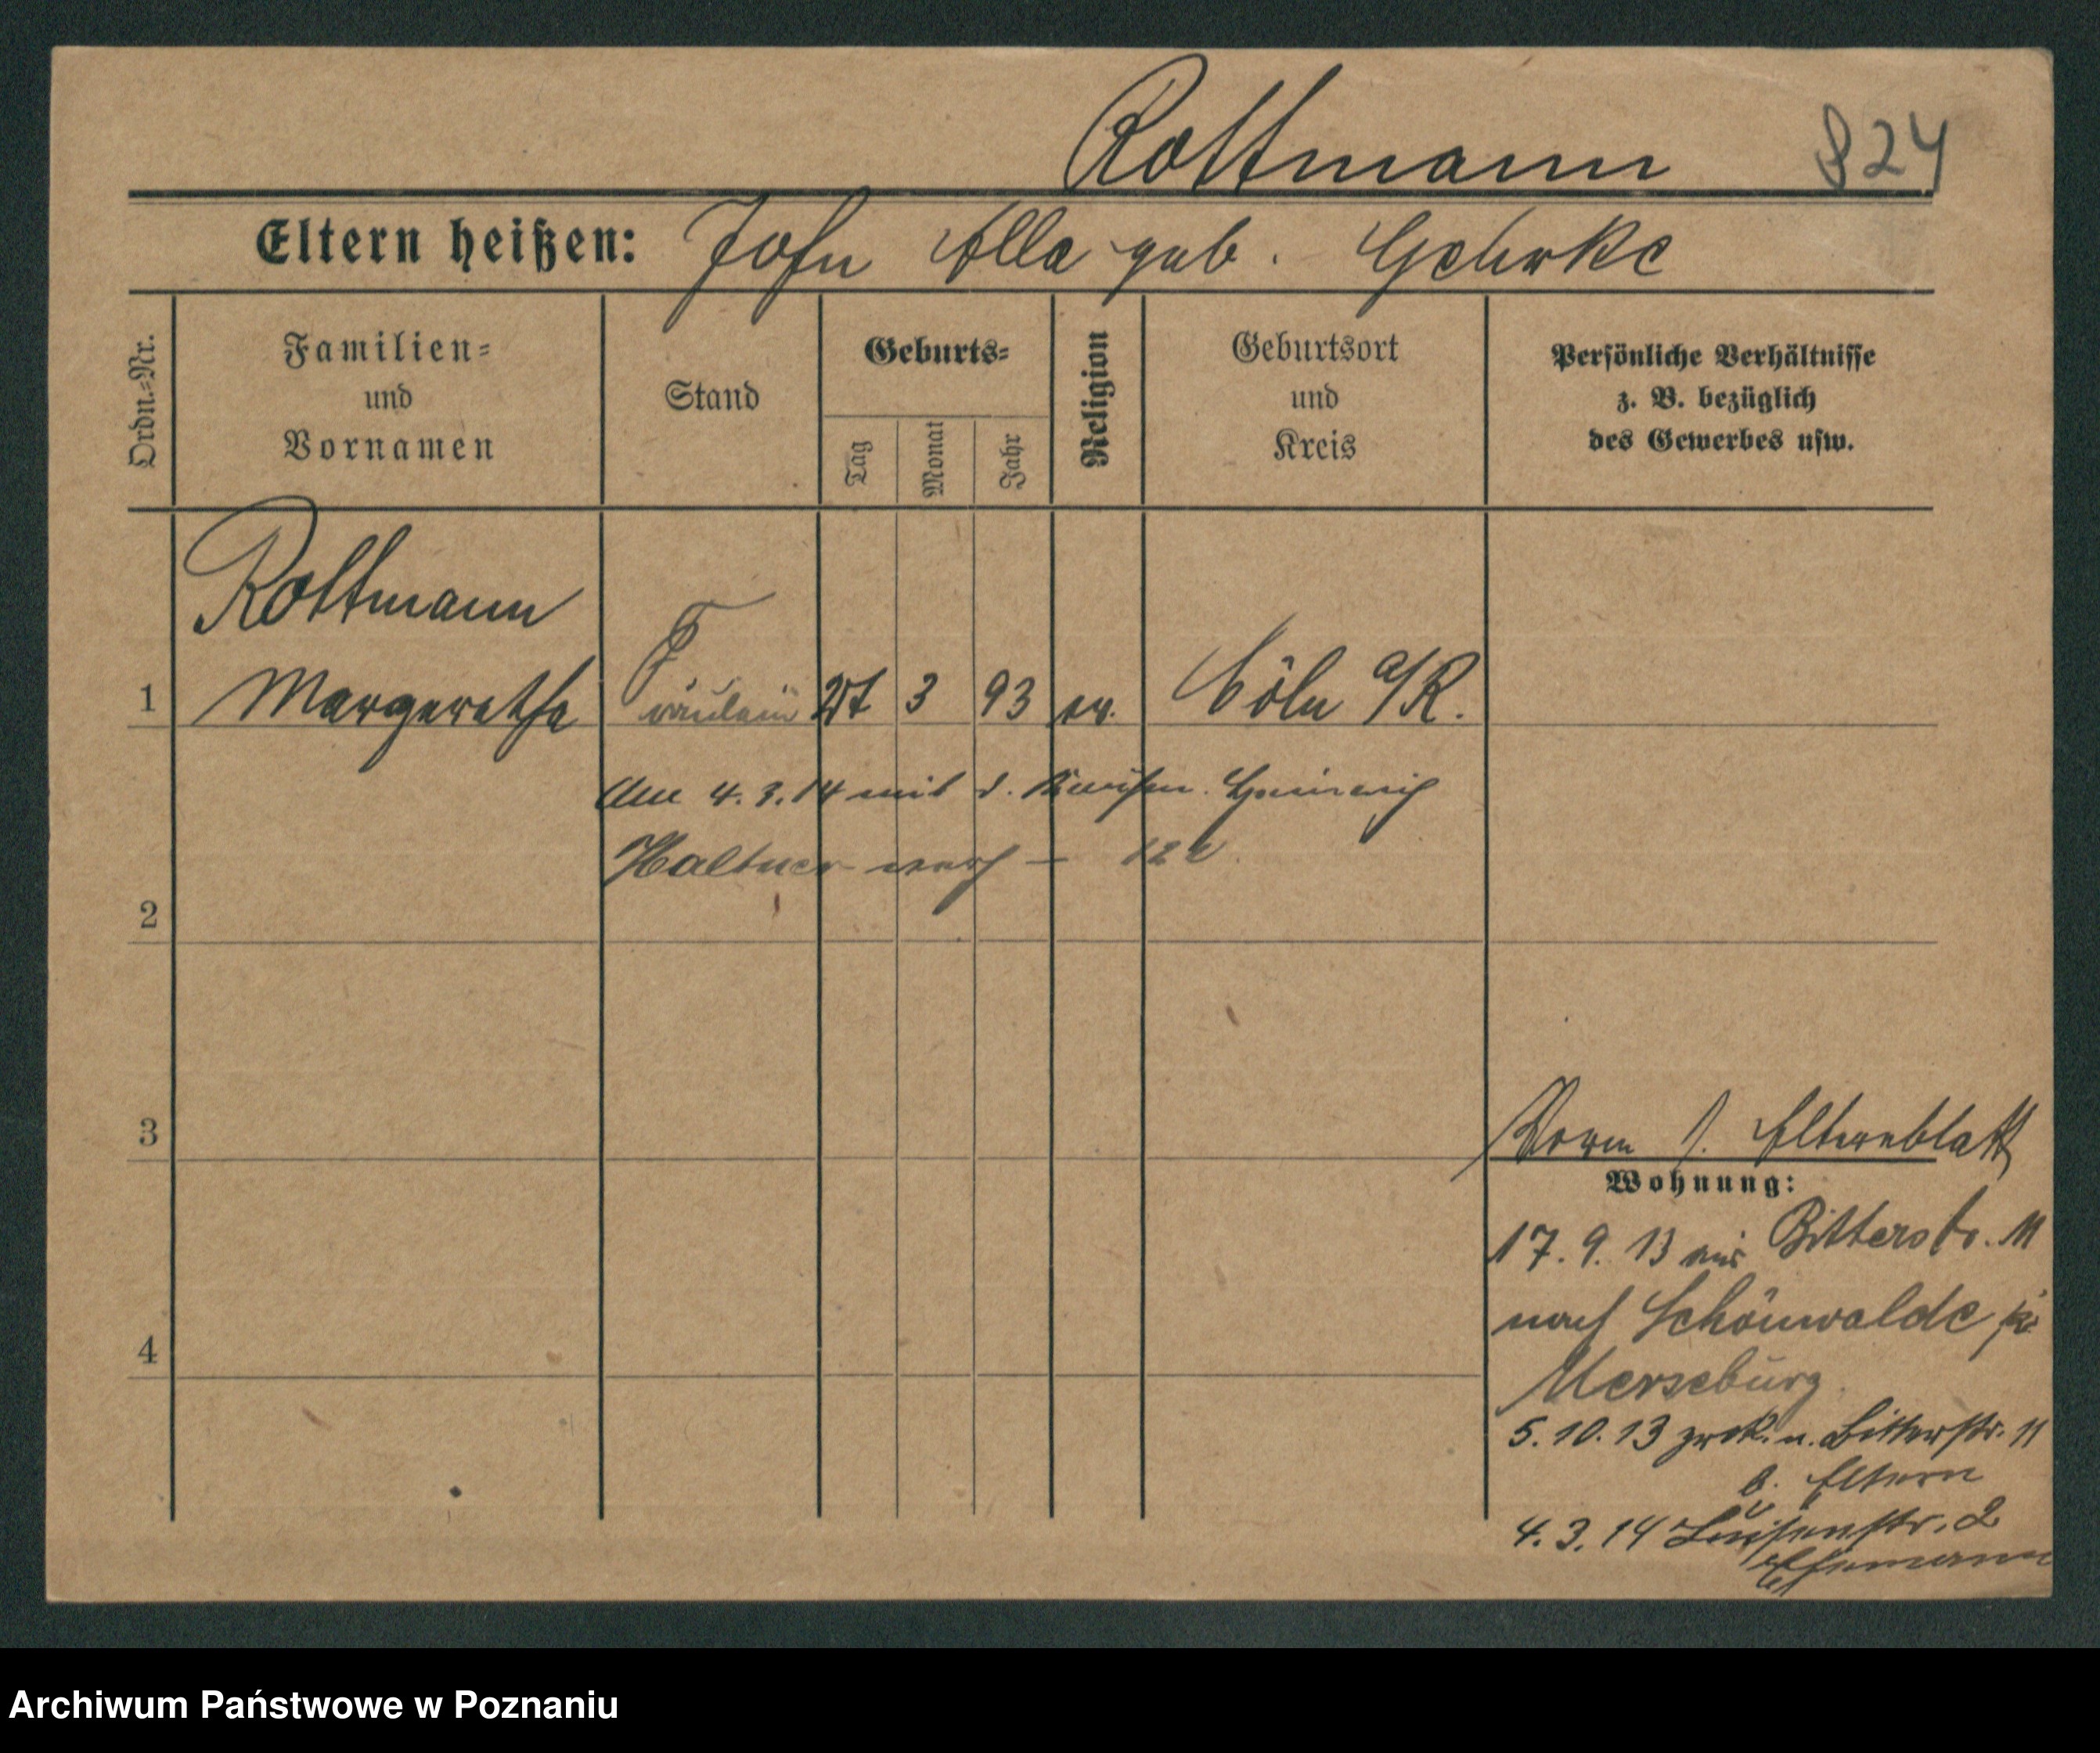 Rottmann 824
Eltern heißen: John Ella geb. Gehrke
Ordn.-Nr.
Familien-
und
Vornamen
Stand
Geburts-
Tag
Monat
Jahr
Religion
Geburtsort
und
Kreis
Persönliche Verhältnisse
z. B. bezüglich
des Gewerbes usw.
Rottmann
1 Margaretha Fräulein 3 93 ev. Cöln a/R.
Am 4.3.14 mit d. Heinrich
Haltner verh – 122
2
3
Vorm s. Elternblatt
Wohnung:
17.9.13 aus Bitterstr. 11
nach Schönwalde
4
Merseburg
5.10.13 zrck. n. Bitterstr. 11
b. Eltern
4.3.14 Luisenstr. 2
Ehemann
Archiwum Państwowe w Poznaniu